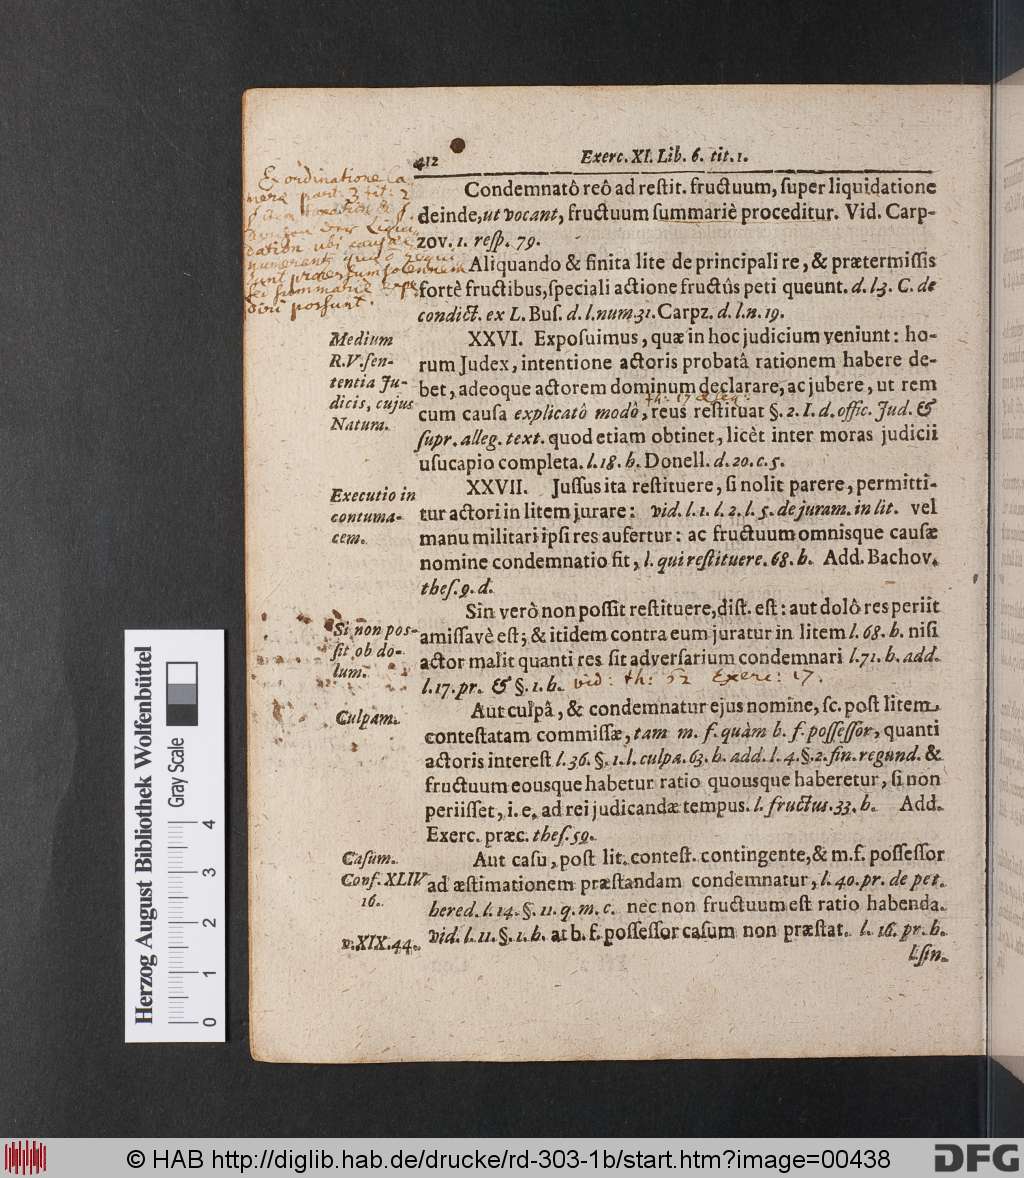 412
Exerc. XI. Lib. 6. tit. 1.
Ex ordinatione Ca-
mera part: 3 tit: 2
Condemnatô reô ad restit. fructuum, super liquidatione
deinde, ut vocant, fructuum summariè proceditur. Vid. Carp-
zov. 1. resp. 79.
der Liqui-
dation ubi causæ
possunt.
Aliquando & finita lite de principali re, & prætermissis
fortè fructibus, speciali actione fructûs peti queunt. d. l. 3. C. de
condict. ex L. Bus. d. l. num. 31. Carpz. d. l. n. 19.
Medium
R. V. sen-
tentia Ju-
dicis, cujus
Natura.
XXVI. Exposuimus, quæ in hoc judicium veniunt: ho-
rum Judex, intentione actoris probatâ rationem habere de-
bet, adeoque actorem dominum declarare, ac jubere, ut rem
th: 17 & seq:
cum causa explicatô modô, reus restituat §. 2. I. d. offic. Jud. &
supr. alleg. text. quod etiam obtinet, licèt inter moras judicii
usucapio completa. l. 18. h. Donell. d. 20. c. 5.
Executio in
contuma-
cem.
XXVII. Jussus ita restituere, si nolit parere, permitti-
tur actori in litem jurare: vid. l. 1. l. 2. l. 5. de juram. in lit. vel
manu militari ipsi res aufertur: ac fructuum omnisque causæ
nomine condemnatio fit, l. qui restituere. 68. h. Add. Bachov.
thes. 9. d.
Si non pos-
sit ob do-
lum.
Sin verò non possit restituere, dist. est: aut dolô res periit
amissavè est; & itidem contra eum juratur in litem l. 68. h. nisi
actor malit quanti res sit adversarium condemnari l. 71. h. add.
l. 17. pr. & §. 1. h. vid: th: 52 Exerc: 17.
Culpam.
Aut culpâ, & condemnatur ejus nomine, sc. post litem
contestatam commissæ, tam m. f. quàm b. f. possessor, quanti
actoris interest l. 36. §. 1. l. culpa. 63. h. add. l. 4. §. 2. fin. regund. &
fructuum eousque habetur ratio quousque haberetur, si non
periisset, i. e. ad rei judicandæ tempus. l. fructus. 33. h. Add.
Exerc. præc. thes. 59.
Casum.
Conf. XLIV
16.
v. XIX. 44.
Aut casu, post lit. contest. contingente, & m. f. possessor
ad æstimationem præstandam condemnatur, l. 40. pr. de pet.
hered. l. 14. §. 11. q. m. c. nec non fructuum est ratio habenda.
vid. l. 11. §. 1. h. at b. f. possessor casum non præstat. l. 16. pr. h.
l. sin.
Herzog August Bibliothek Wolfenbüttel
Gray Scale
0 1 2 3 4
© HAB http://diglib.hab.de/drucke/rd-303-1b/start.htm?image=00438
DFG